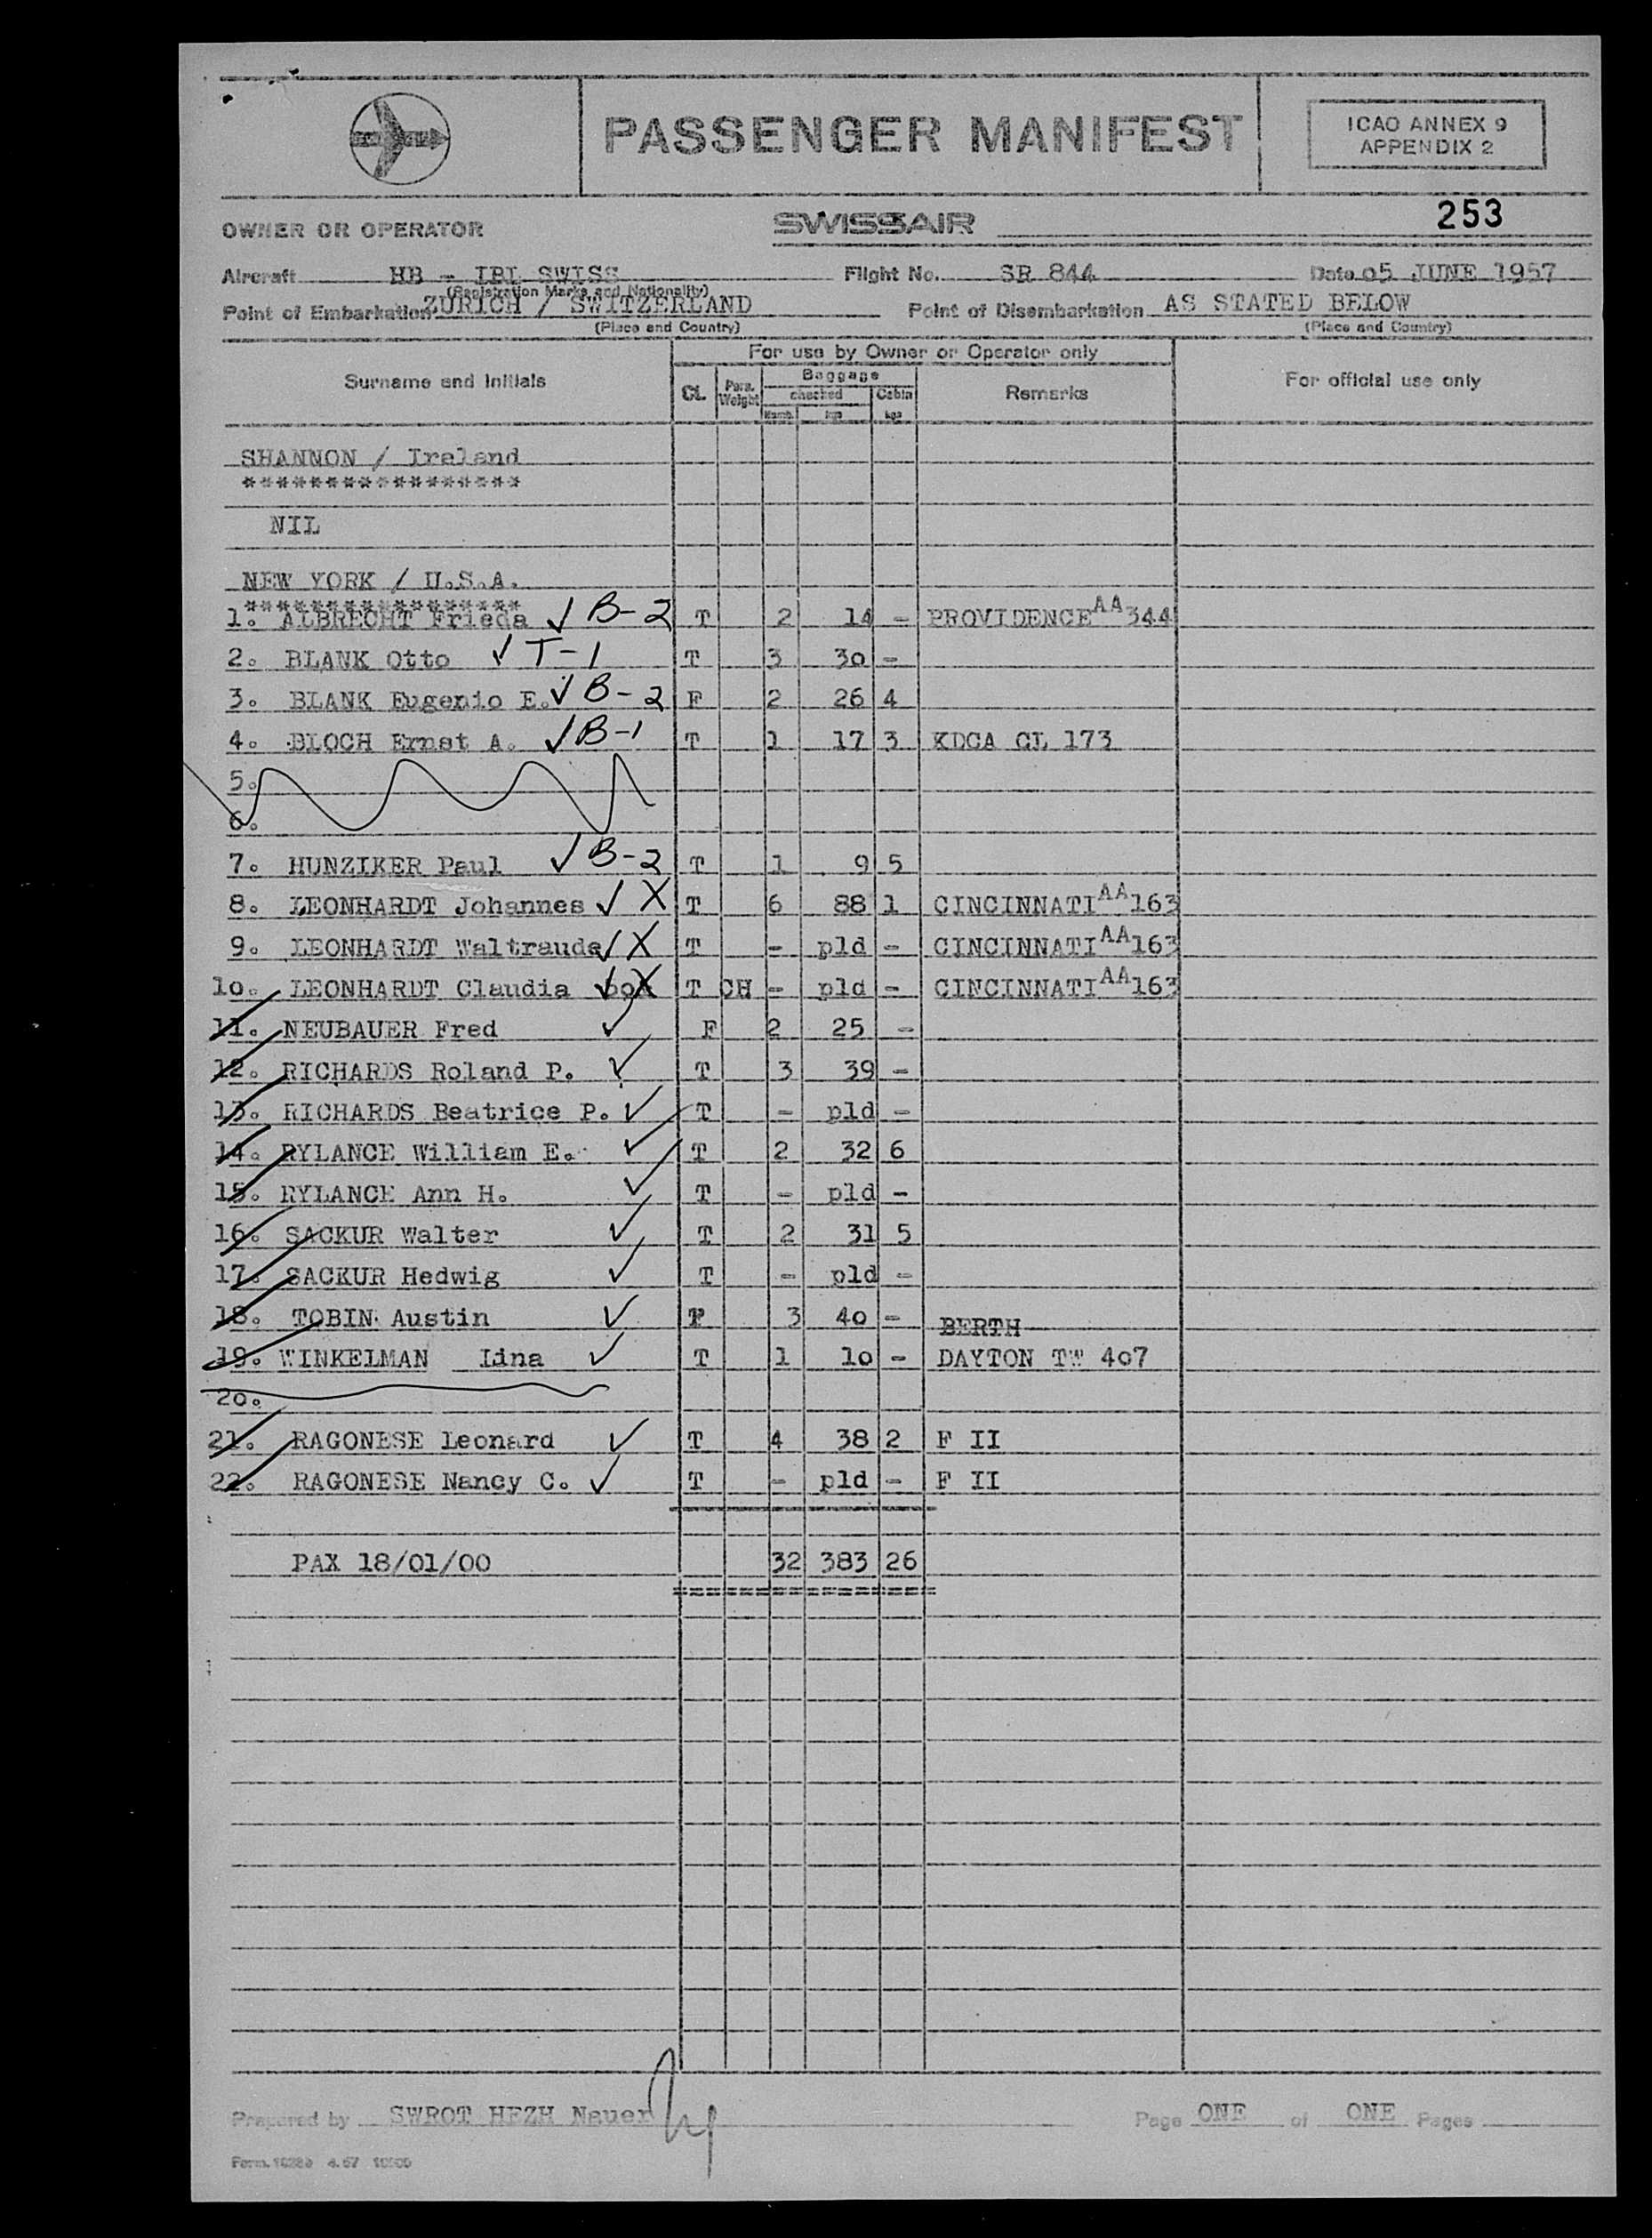 PASSENGER MANIFEST
ICAO ANNEX 9
APPENDIX 2
253
OWNER OR OPERATOR SWISSAIR
Aircraft HB - IBI SWISS Flight No. SR 844 Date o5 JUNE 1957
(Registration Marks and Nationality)
Point of Embarkation ZURICH / SWITZERLAND Point of Disembarkation AS STATED BELOW
(Place and Country) (Place and Country)
For use by Owner or Operator only
Surname and Initials CL. Pass. Weight Baggage Remarks For official use only
checked Cabin
Numb. kgs kgs
SHANNON / Ireland
*****************
NIL
NEW YORK / U.S.A.
*****************
1. ALBRECHT Frieda ✓ B-2 T 2 14 - PROVIDENCE AA 344
2. BLANK Otto ✓ T-1 T 3 3o -
3. BLANK Eugenio E. ✓ B-2 F 2 26 4
4. BLOCH Ernst A. ✓ B-1 T 1 17 3 KDCA CL 173
5.
6.
7. HUNZIKER Paul ✓ B-2 T 1 9 5
8. LEONHARDT Johannes ✓ X T 6 88 1 CINCINNATI AA 163
9. LEONHARDT Waltraude ✓ X T - pld - CINCINNATI AA 163
1o. LEONHARDT Claudia ✓ X T CH - pld - CINCINNATI AA 163
11. NEUBAUER Fred ✓ F 2 25 -
12. RICHARDS Roland P. ✓ T 3 39 -
13. RICHARDS Beatrice P. ✓ T - pld -
14. RYLANCE William E. ✓ T 2 32 6
15. RYLANCE Ann H. ✓ T - pld -
16. SACKUR Walter ✓ T 2 31 5
17. SACKUR Hedwig ✓ T - pld -
18. TOBIN Austin ✓ 3 4o - BERTH
19. WINKELMAN Lina ✓ T 1 1o - DAYTON TW 4o7
2o.
21. RAGONESE Leonard ✓ T 4 38 2 F II
22. RAGONESE Nancy C. ✓ T - pld - F II
PAX 18/01/00 32 383 26
===============
Prepared by SWROT HFZH Nauer Page ONE of ONE Pages
Form. 4.57